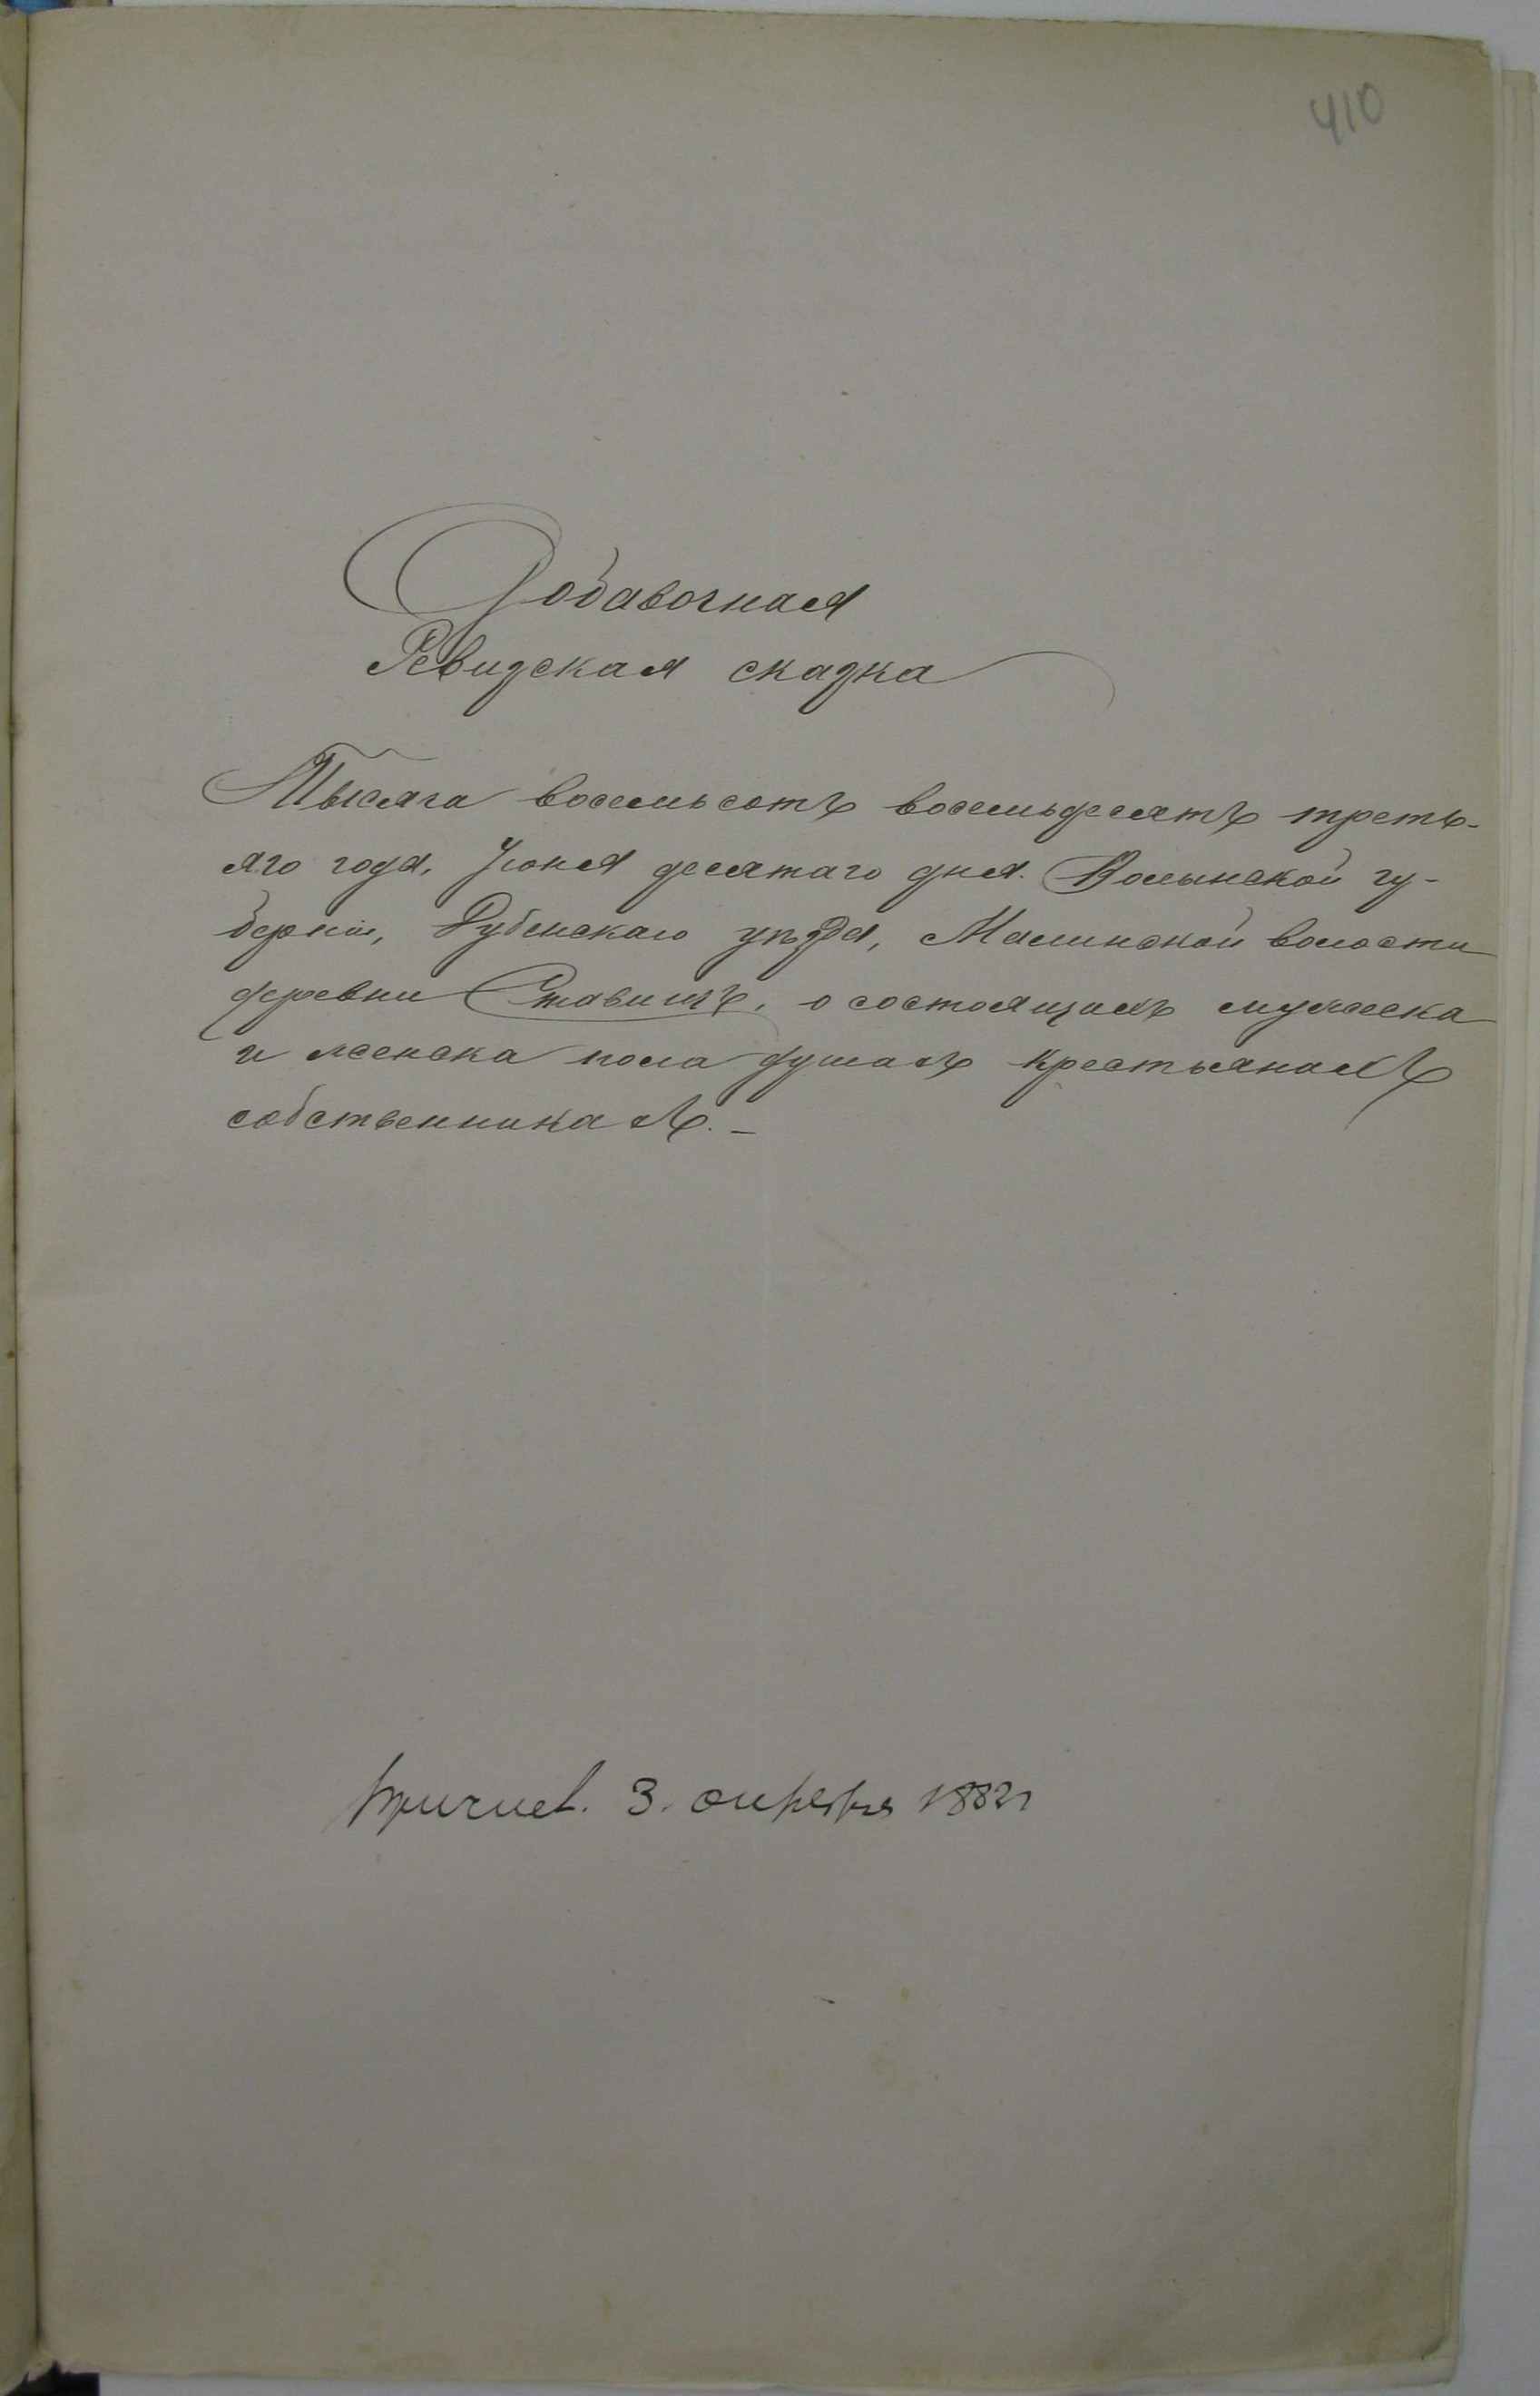 410
Добавочная
Ревизская сказка
Тысяча восемьсотъ восемьдесятъ треть-
яго года, Іюня десятаго дня. Волынской гу-
берніи, Дубенскаго уѣзда, Малинской волости
деревни Ставищъ, о состоящихъ мужеска
и женска пола душахъ крестьянахъ
собственникахъ. -
3. октября 188